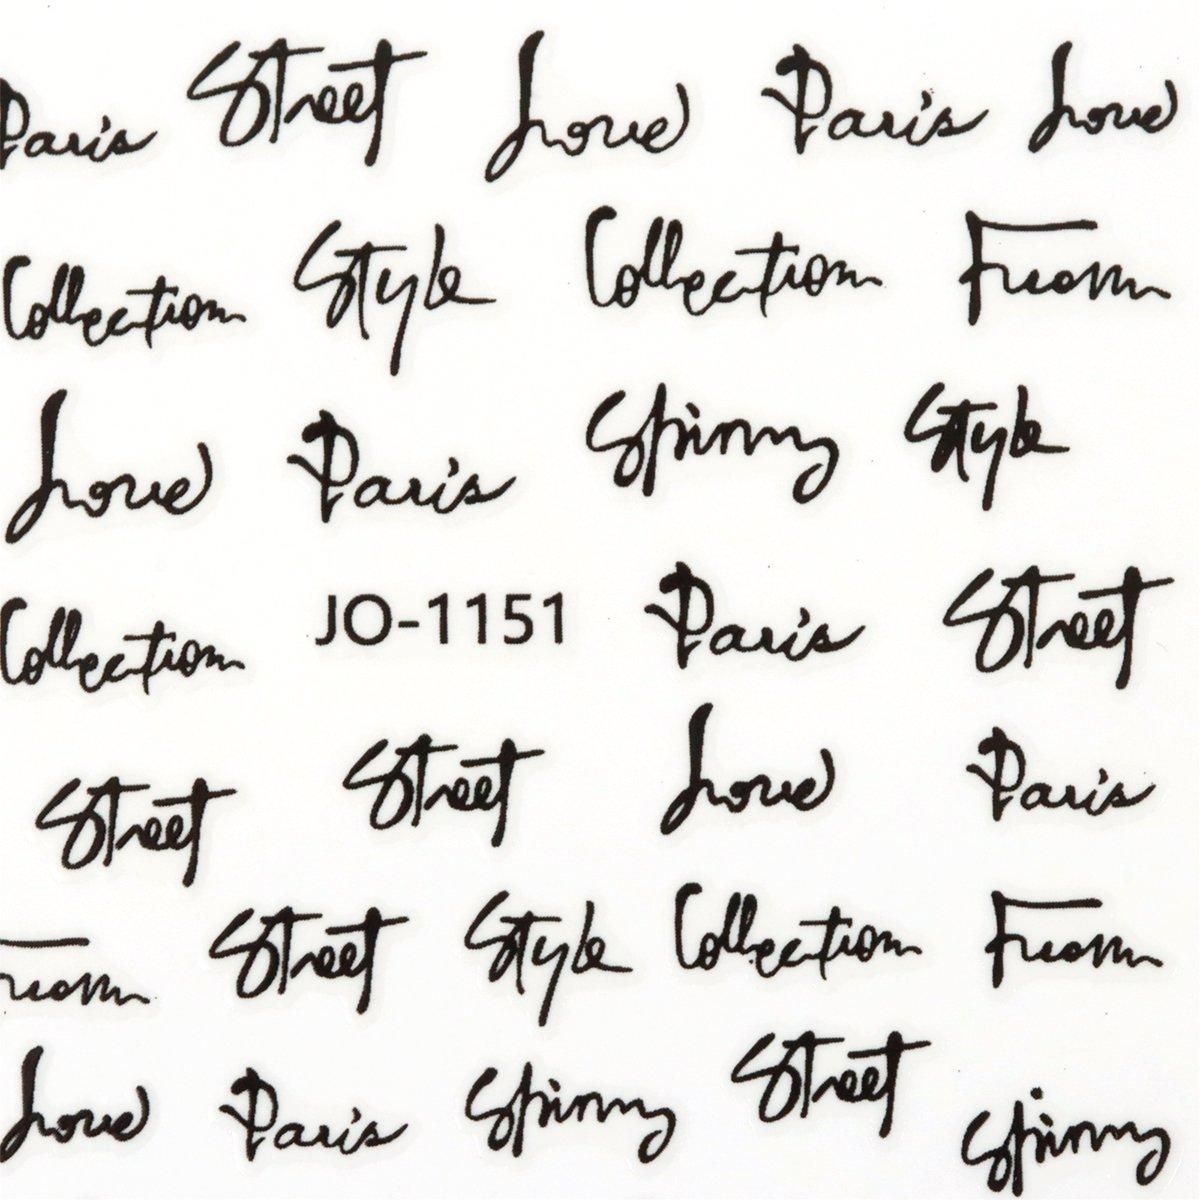 Paris Street Love Paris Love
Collection Style Collection From
Love Paris Spinny Style
Collection JO-1151 Paris Street
Street Street Love Paris
From Street Style Collection From
Love Paris Spinny Street Spinny